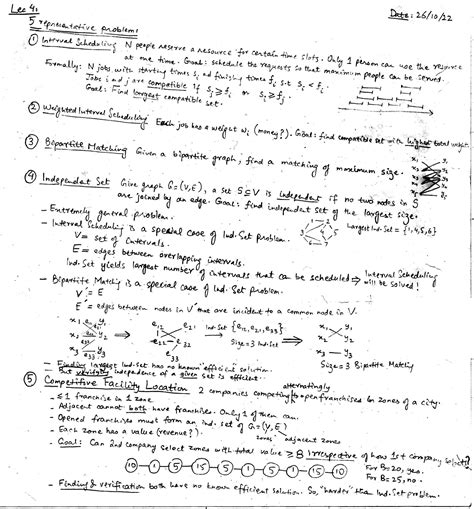 Lec 4: Date: 26/10/22
5 representative problems
① Interval Scheduling N people reserve a resource for certain time slots. Only 1 person can use the resource
at one time. Goal: schedule the requests so that maximum people can be served.
Formally: N jobs with starting times si and finishing times fi s.t. si < fi.
Jobs i and j are compatible if si ≥ fj or sj ≥ fi.
Goal: Find largest compatible set.
② Weighted Interval Scheduling Each job has a weight wi (money?). Goal: find compatible set with highest total weight.
③ Bipartite Matching Given a bipartite graph, find a matching of maximum size.
④ Independent Set Give graph G=(V,E), a set S⊆V is independent if no two nodes in S
are joined by an edge. Goal: find independent set of the largest size.
- Extremely general problem. Largest Ind. Set = {1,4,5,6}
- Interval Scheduling is a special case of Ind. Set problem.
V = set of intervals.
E = edges between overlapping intervals.
Ind. Set yields largest number of intervals that can be scheduled ⇒ Interval Scheduling
will be solved!
- Bipartite Matching is a special case of Ind. Set problem.
V' = E
E' = edges between nodes in V' that are incident to a common node in V.
x1 e12 y1 e12 e21 Ind. Set {e12, e21, e33} x1 y1
x2 e22 y2 ⇒ e22 e32 ⇒ Size = 3 Ind. Set ⇒ x2 y2
x3 e33 y3 e33 x3 y3
Size = 3 Bipartite Matching
- Finding largest Ind. Set has no known efficient solution.
- But verifying independence of a given set is efficient.
⑤ Competitive Facility Location 2 companies competing to alternatingly open franchises on zones of a city.
- ≤ 1 franchise in 1 zone
- Adjacent cannot both have franchises. Only 1 of them can.
- Opened franchises must form an ind. set of G=(V,E)
zones adjacent zones
- Each zone has a value (revenue?).
- Goal: Can 2nd company select zones with total value ≥ B irrespective of how 1st company selects?
10 1 5 15 5 1 5 1 15 10 For B=20, yes.
For B=25, no.
- Finding & verification both have no known efficient solution. So, "harder" than Ind. Set problem.